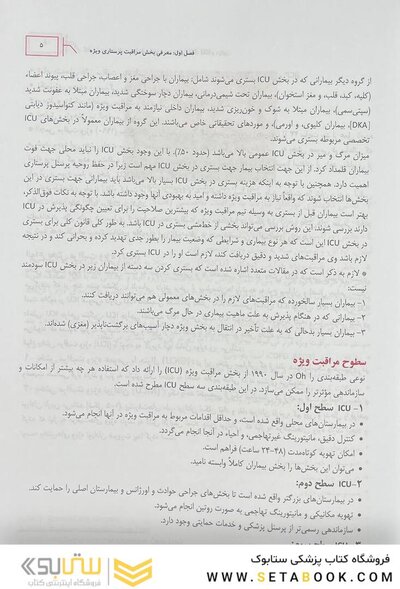 فصل اول: معرفی بخش مراقبت پرستاری ویژه
۵
از گروه دیگر بیمارانی که در بخش ICU بستری می‌شوند شامل: بیماران با جراحی مغز و اعصاب، جراحی قلب، پیوند اعضاء
(کلیه، کبد، قلب، و مغز استخوان)، بیماران تحت شیمی‌درمانی، بیماران دچار سوختگی شدید، بیماران مبتلا به عفونت شدید
(سپتی‌سمی)، بیماران مبتلا به شوک و خون‌ریزی شدید، بیماران داخلی نیازمند به مراقبت ویژه (مانند کتواسیدوز دیابتی
(DKA)، بیماران کلیوی، و اورمی)، و موردهای تحقیقاتی خاص می‌باشند. این گروه از بیماران معمولاً در بخش‌های ICU
تخصصی مربوطه بستری می‌شوند.
میزان مرگ و میر در بخش ICU عمومی بالا می‌باشد (حدود ۵۰٪). با این وجود بخش ICU را نباید محلی جهت فوت
بیماران قلمداد کرد. از این جهت انتخاب بیمار جهت بستری در بخش ICU مهم است زیرا در حفظ روحیه پرسنل پرستاری
اهمیت دارد. همچنین با توجه به اینکه هزینه بستری در بخش ICU بسیار بالا می‌باشد باید بیمارانی جهت بستری در این
بخش‌ها انتخاب شوند که واقعاً نیاز به مراقبت ویژه داشته و امید به بهبودی آنها وجود داشته باشد. با توجه به نکات فوق‌الذکر،
بهتر است بیماران قبل از بستری به وسیله تیم مراقبت ویژه که بیشترین صلاحیت را برای تعیین چگونگی پذیرش در ICU
دارند بررسی شوند. این روش بررسی می‌تواند بخشی از خط‌مشی بستری در ICU باشد. به طور کلی قانون کلی برای بستری
در بخش ICU این است که هر نوع بیماری و شرایطی که وضعیت بیمار را بطور جدی تهدید کرده و بحرانی کند و در نتیجه
لازم باشد وی مراقبت‌های شدید و دقیق دریافت کند، لازم است او را در ICU بستری کرد.
* لازم به ذکر است که در مقالات متعدد اشاره شده است که بستری کردن سه دسته از بیماران زیر در بخش ICU سودمند
نیست:
۱- بیماران بسیار سالخورده که مراقبت‌های لازم را در بخش‌های معمولی هم می‌توانند دریافت کنند.
۲- بیمارانی که در هنگام پذیرش به علت ماهیت بیماری در حال مرگ می‌باشند.
۳- بیماران بسیار بدحالی که به علت تأخیر در انتقال به بخش ویژه دچار آسیب‌های برگشت‌ناپذیر (مغزی) شده‌اند.
سطوح مراقبت ویژه
نوعی طبقه‌بندی را Oh در سال ۱۹۹۰ از بخش مراقبت ویژه (ICU) را ارائه داد که استفاده هر چه بیشتر از امکانات و
سازماندهی مؤثرتر را ممکن می‌سازد. در این طبقه‌بندی سه سطح ICU مطرح شده است.
۱- ICU سطح اول:
• در بیمارستان‌های محلی واقع شده است، و حداقل اقدامات مربوط به مراقبت ویژه در آنها انجام می‌شود.
• کنترل دقیق، مانیتورینگ غیرتهاجمی، و احیاء در آنجا انجام می‌گردد.
• امکان تهویه کوتاه‌مدت (۴۸-۲۴ ساعت) فراهم است.
• می‌توان این بخش‌ها را بخش بیماران کاملاً وابسته نامید.
۲- ICU سطح دوم:
• در بیمارستان‌های بزرگتر واقع شده است تا بخش‌های جراحی حوادث و اورژانس و بیمارستان اصلی را حمایت کند.
• تهویه مکانیکی و مانیتورینگ تهاجمی به صورت روتین انجام می‌شود.
• سازماندهی رسمی‌تر از پرسنل پزشکی و خدمات حمایتی وجود دارد.
فروشگاه کتاب پزشکی ستابوک
WWW.SETABOOK.COM
ستابوک
فروشگاه اینترنتی کتاب